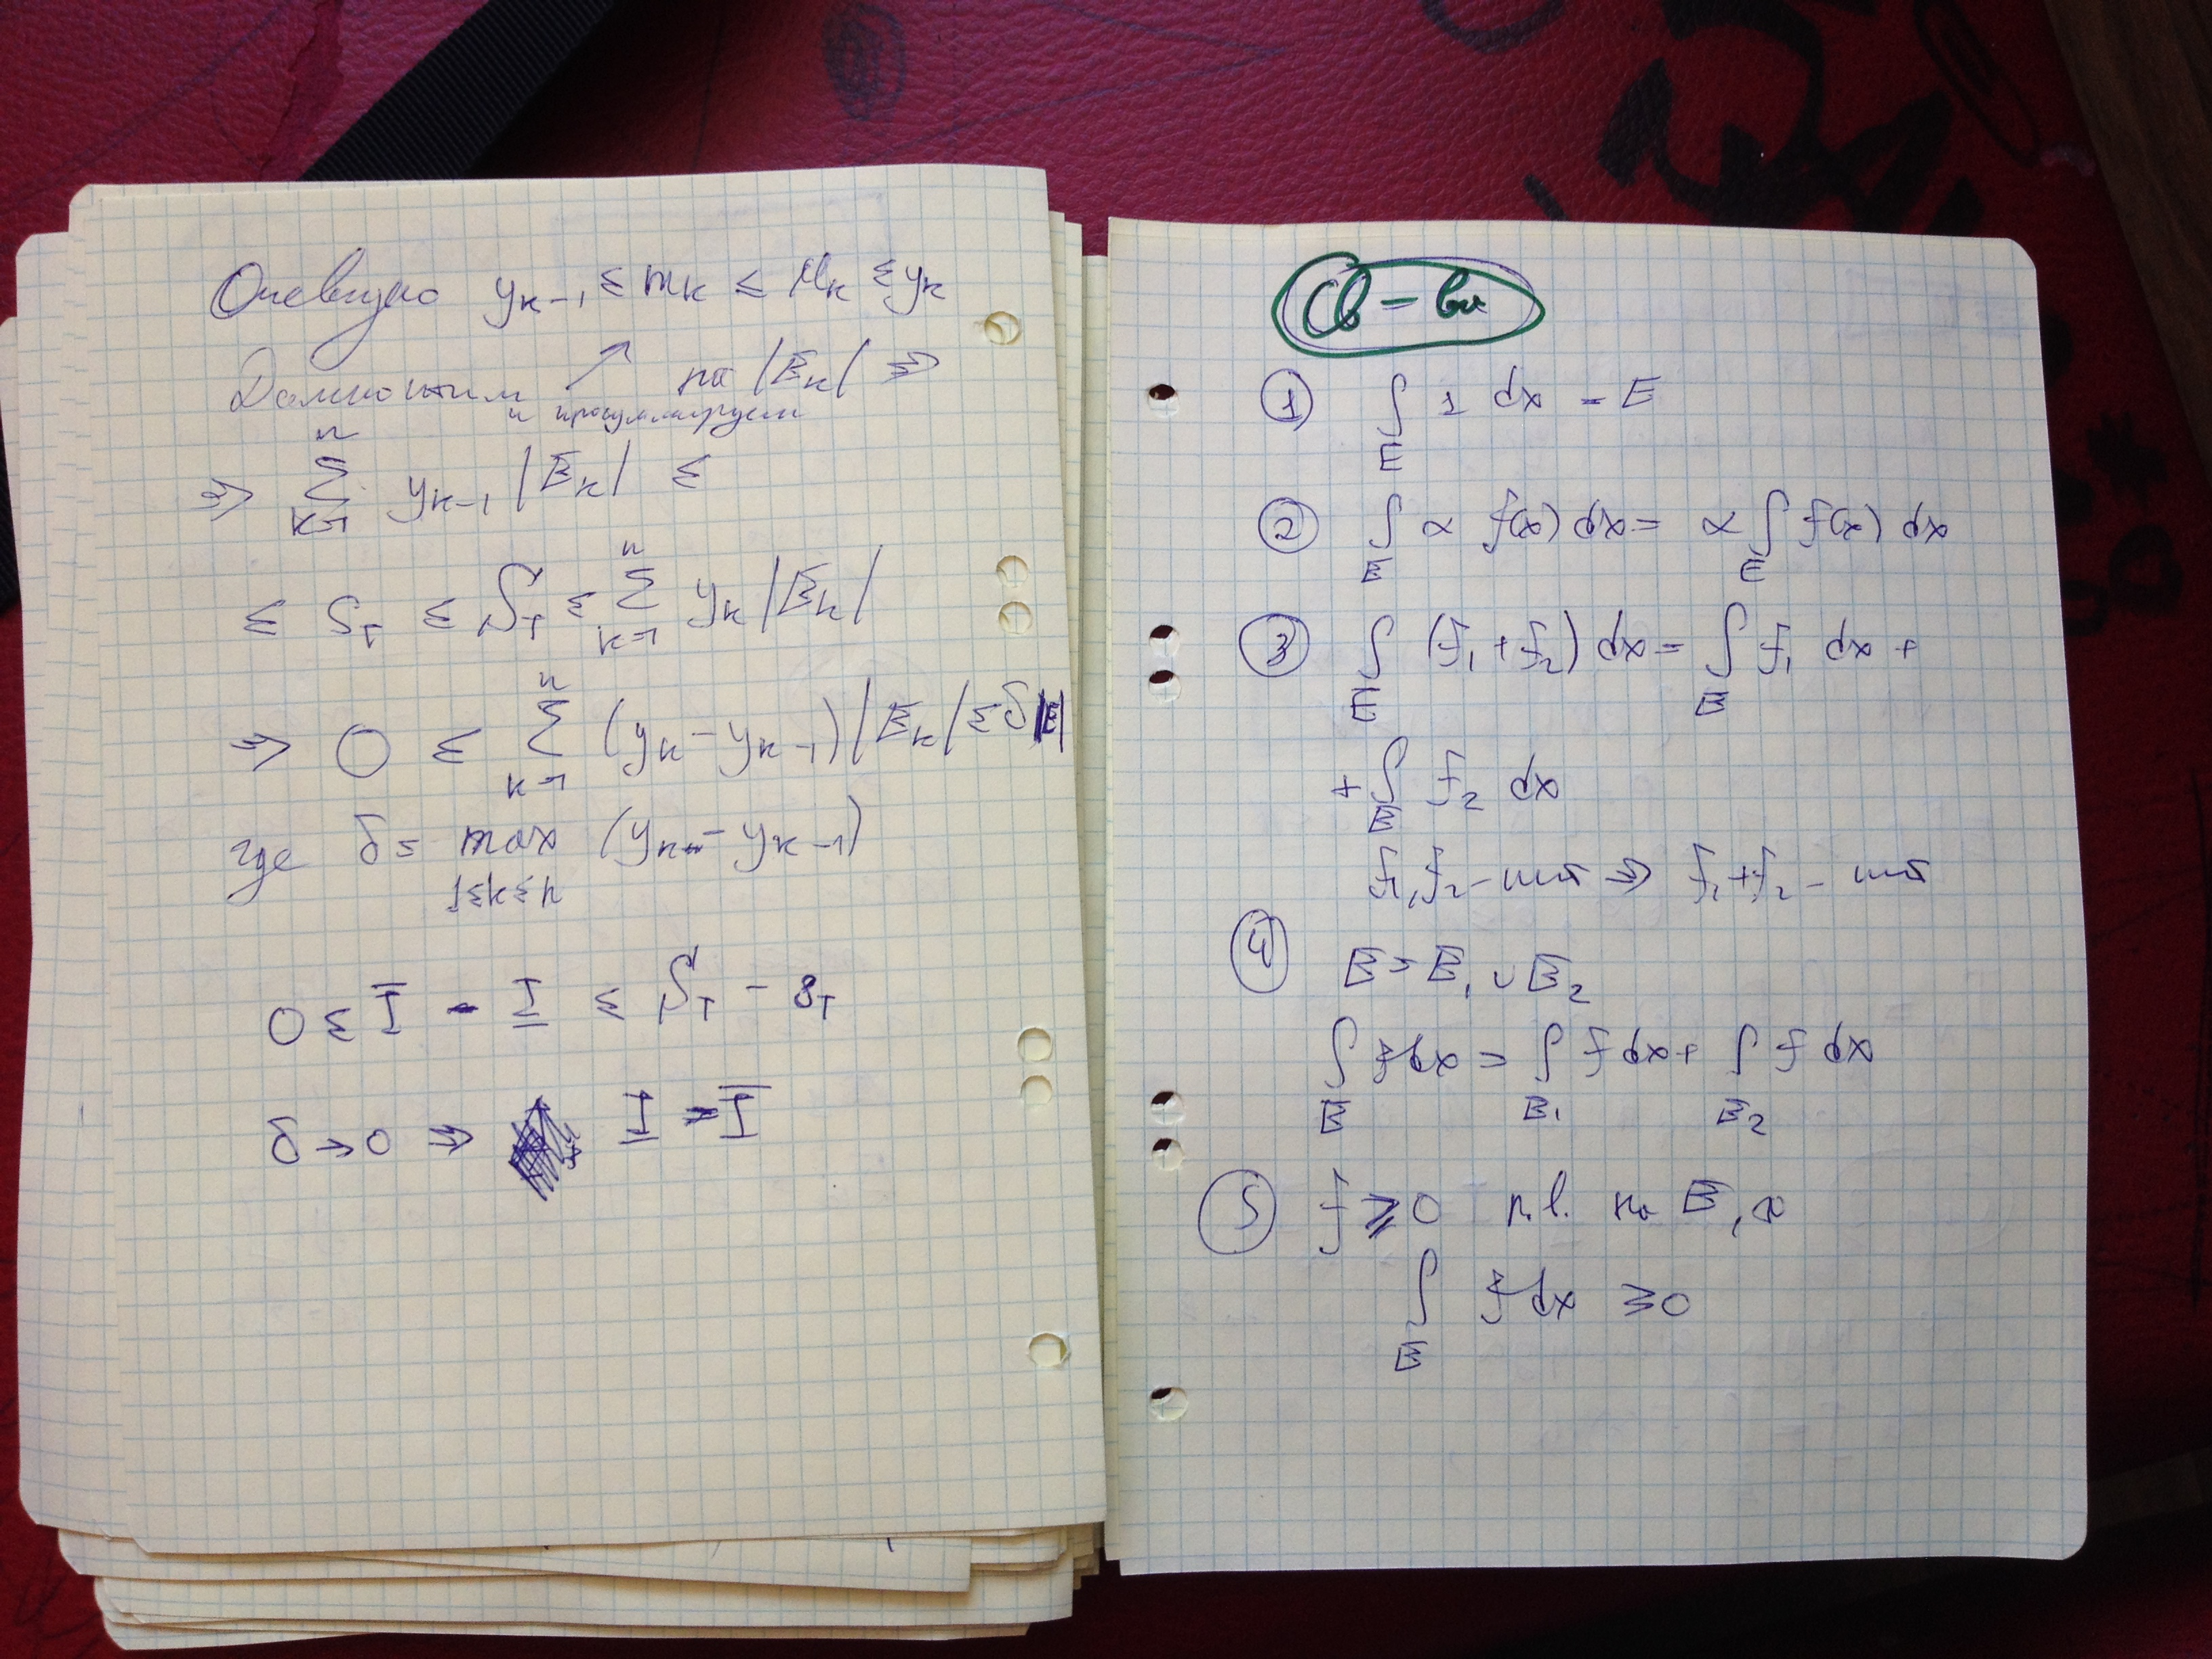 Очевидно yₖ₋₁ ≤ mₖ ≤ Mₖ ≤ yₖ
Домножим ↗ на |Eₖ| ⇒
и просуммируем
⇒ ∑ₖ₌₁ⁿ yₖ₋₁ |Eₖ| ≤
≤ s_T ≤ S_T ≤ ∑ₖ₌₁ⁿ yₖ |Eₖ|
⇒ 0 ≤ ∑ₖ₌₁ⁿ (yₖ - yₖ₋₁) |Eₖ| ≤ δ|E|
где δ = max (yₖ - yₖ₋₁)
1≤k≤n
0 ≤ Ī - I̲ ≤ S_T - s_T
δ → 0 ⇒ I̲ = Ī
Св-ва
① ∫_E 1 dx = E
② ∫_E α f(x) dx = α ∫_E f(x) dx
③ ∫_E (f₁ + f₂) dx = ∫_E f₁ dx +
+ ∫_E f₂ dx
f₁, f₂ - инт ⇒ f₁ + f₂ - инт
④ E = E₁ ∪ E₂
∫_E f dx = ∫_E₁ f dx + ∫_E₂ f dx
⑤ f ≥ 0 п.в. на E,
∫_E f dx ≥ 0